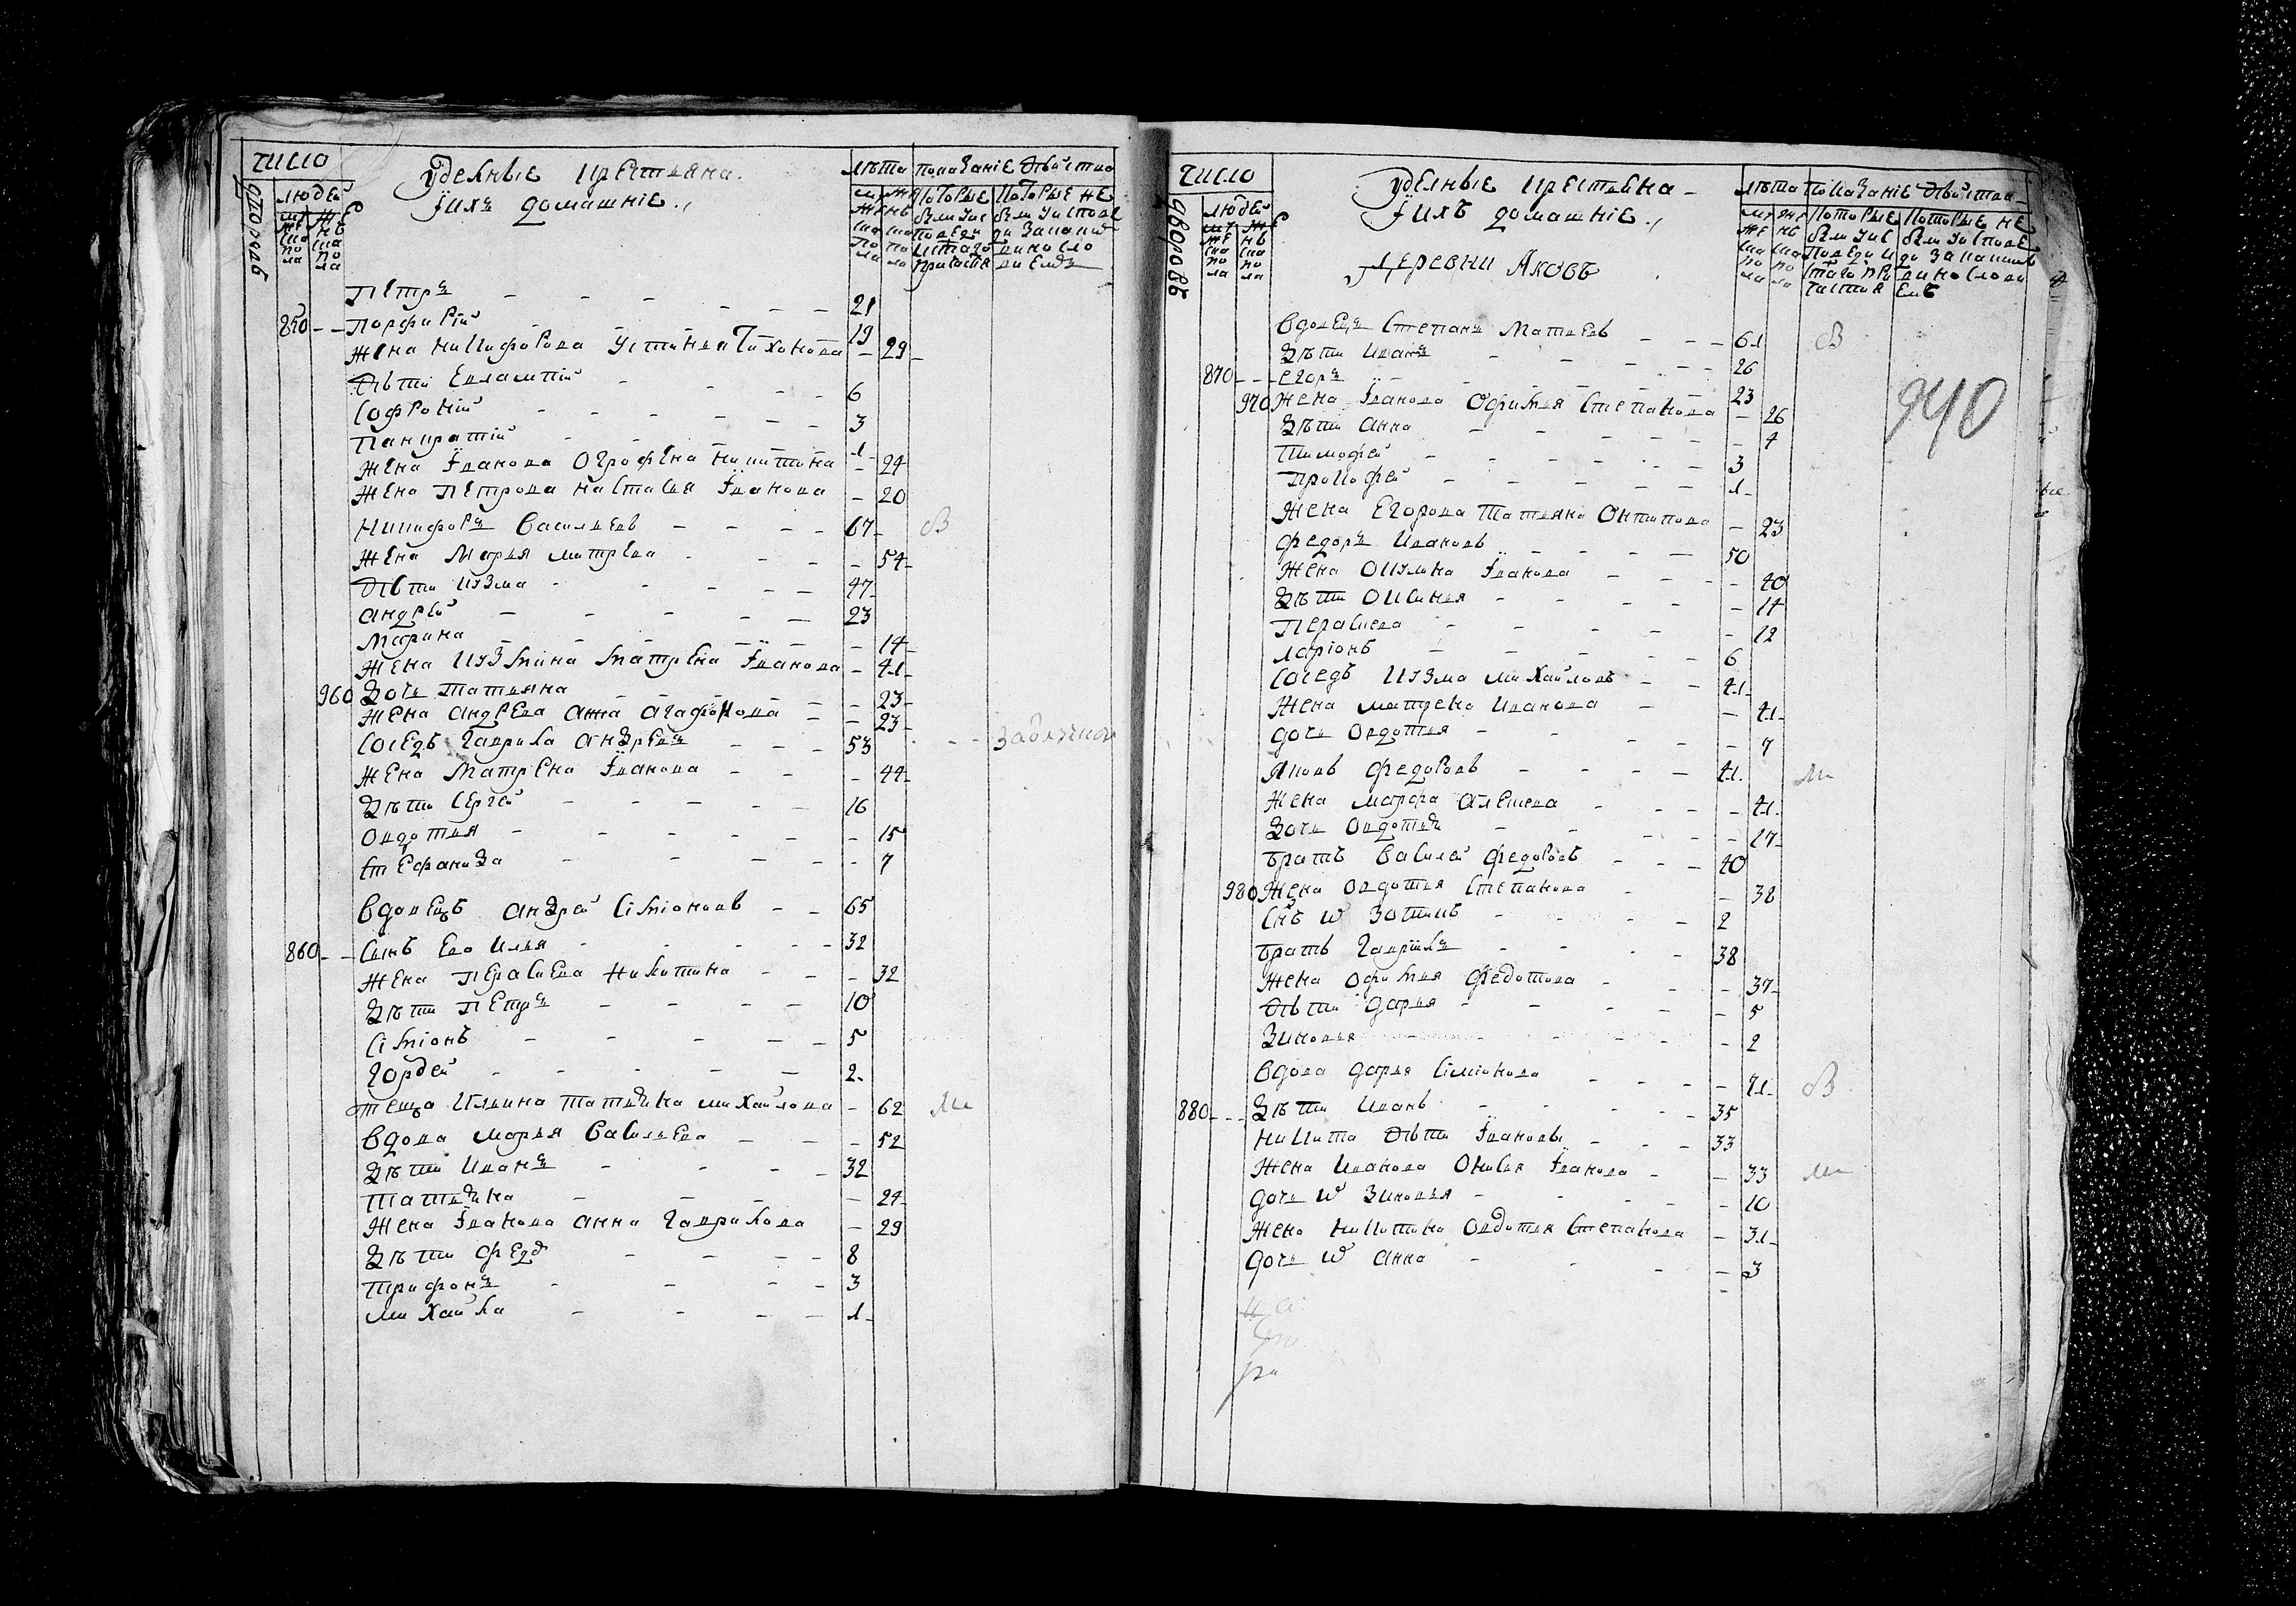 число
дворовъ
людей
мужеска пола
женска пола
Удельные крестьяна
Їихъ домашніе
лѣта
мужеска пола
женска пола
показаніе действа
которые были у исповеди и стаго причастія
которые не были у исповеди за какимъ виносло виемъ
Петръ - - - - - 21
850 - - Порфирій - 19
Жена никифорова Устинья Тихонова - 29
Дѣти Евлампій - - - - 6
Софроній - - - - - 3
Панкратій - - 1
Жена Їванова Огрофена никитина - 24
Жена Петрова настасья Їванова - 20
Никифоръ Васильевъ - - - - 67 В
Жена Марья митрева - - - 54
Дѣти кузма - - - - 47
андрей - - - - - 23
Марина - - - - - 14
Жена кузмина матрена Їванова - 41
960 Дочь татьяна - - - 23
Жена андрева анна агафонова - - 23
Соседъ гаврила андревъ - - - 53
Жена матрена Їванова - - - 44
Дѣти сергей - - - - 16
овдотья - - - - 15
стефанида - - - - 7
вдовецъ андрей симіоновъ - - 65
860 - - Сынъ Ево илья - - - - 32
Жена Перасиева никитина - - - 32
Дѣти Петръ - - - - 10
симіонъ - - - - - 5
гордей - - - - - 2
теща ильина татьяна михайлова - 62
вдова марья васильева - - - 52
Дѣти иванъ - - - - 32
татьяна - - - - 24
Жена Їванова анна гаврилова - 29
Дѣти федр - - - - 8
трифонъ - - - - 3
михайла - - - - 1
число
дворовъ
людей
мужеска пола
женска пола
Уделные крестьяна
Їихъ домашніе
Деревни Аковъ
лѣта
мужеска пола
женска пола
показаніе действа
которые были у исповеди и стаго причастия
которые не были у исповеди за какимъ винословиемъ
вдовецъ степанъ матвевъ - - - 61 В
Дѣти иванъ - - - - 26
870 - - - егоръ - - - - 23
970 Жена Їванова офимья степанова - 26
Дѣти анна - - - - - 4
тимофей - - - - - 3
прокофей - - - - - 1
940
Жена егорова татьяна онтипова - 23
федоръ ивановъ - - - - 50
Жена окулина Їванова - - - 40
Дѣти оксинья - - - - 14
Перасиева - - - - - 12
ларіонъ - - - - - 6
соседъ кузма михайловъ - - 41
Жена матрена иванова - - 41
дочь овдотья - - - - 7
Яковъ федоровъ - - - - 41
Жена марфа алешева - - - 41
Дочь овдотья - - - - 17
братъ василей федоровъ - - - 40
980 Жена овдотья степанова - - 38
снъ и зотикъ - - - - 2
братъ гаврила - - - - 38
Жена офимья федотова - - - 37
Дѣти дарья - - - - 5
Зиновья - - - - 2
вдова дарья симіонова - - - - 71 В
880 - - - Дѣти иванъ - - - - 35
никита дѣти Ївановы - - - 33
Жена иванова онисья Їванова - - 33
дочь и зиновья - - - - 10
Жена никитина овдотья степанова - 31
дочь и анна - - - - 3